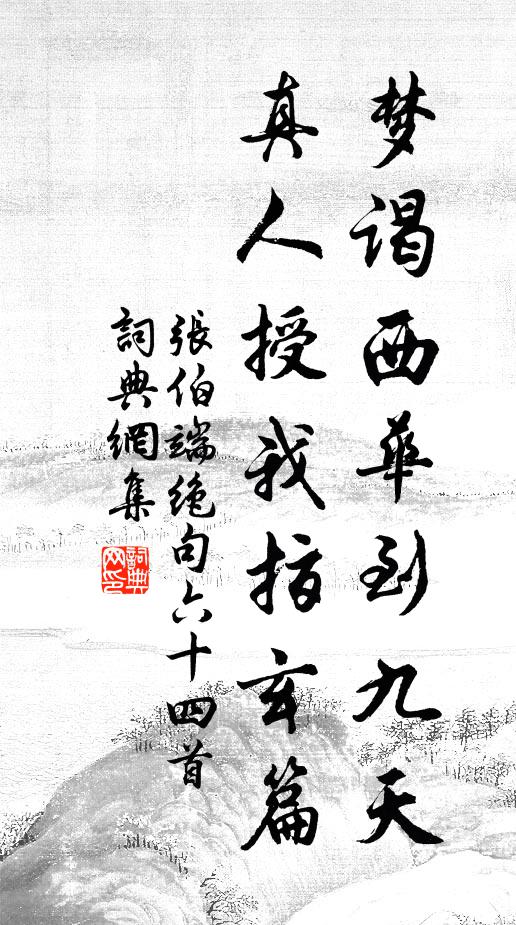 梦谒西华到九天
真人授我指玄篇
張伯端绝句六十四首
詞典網集
詞典网印